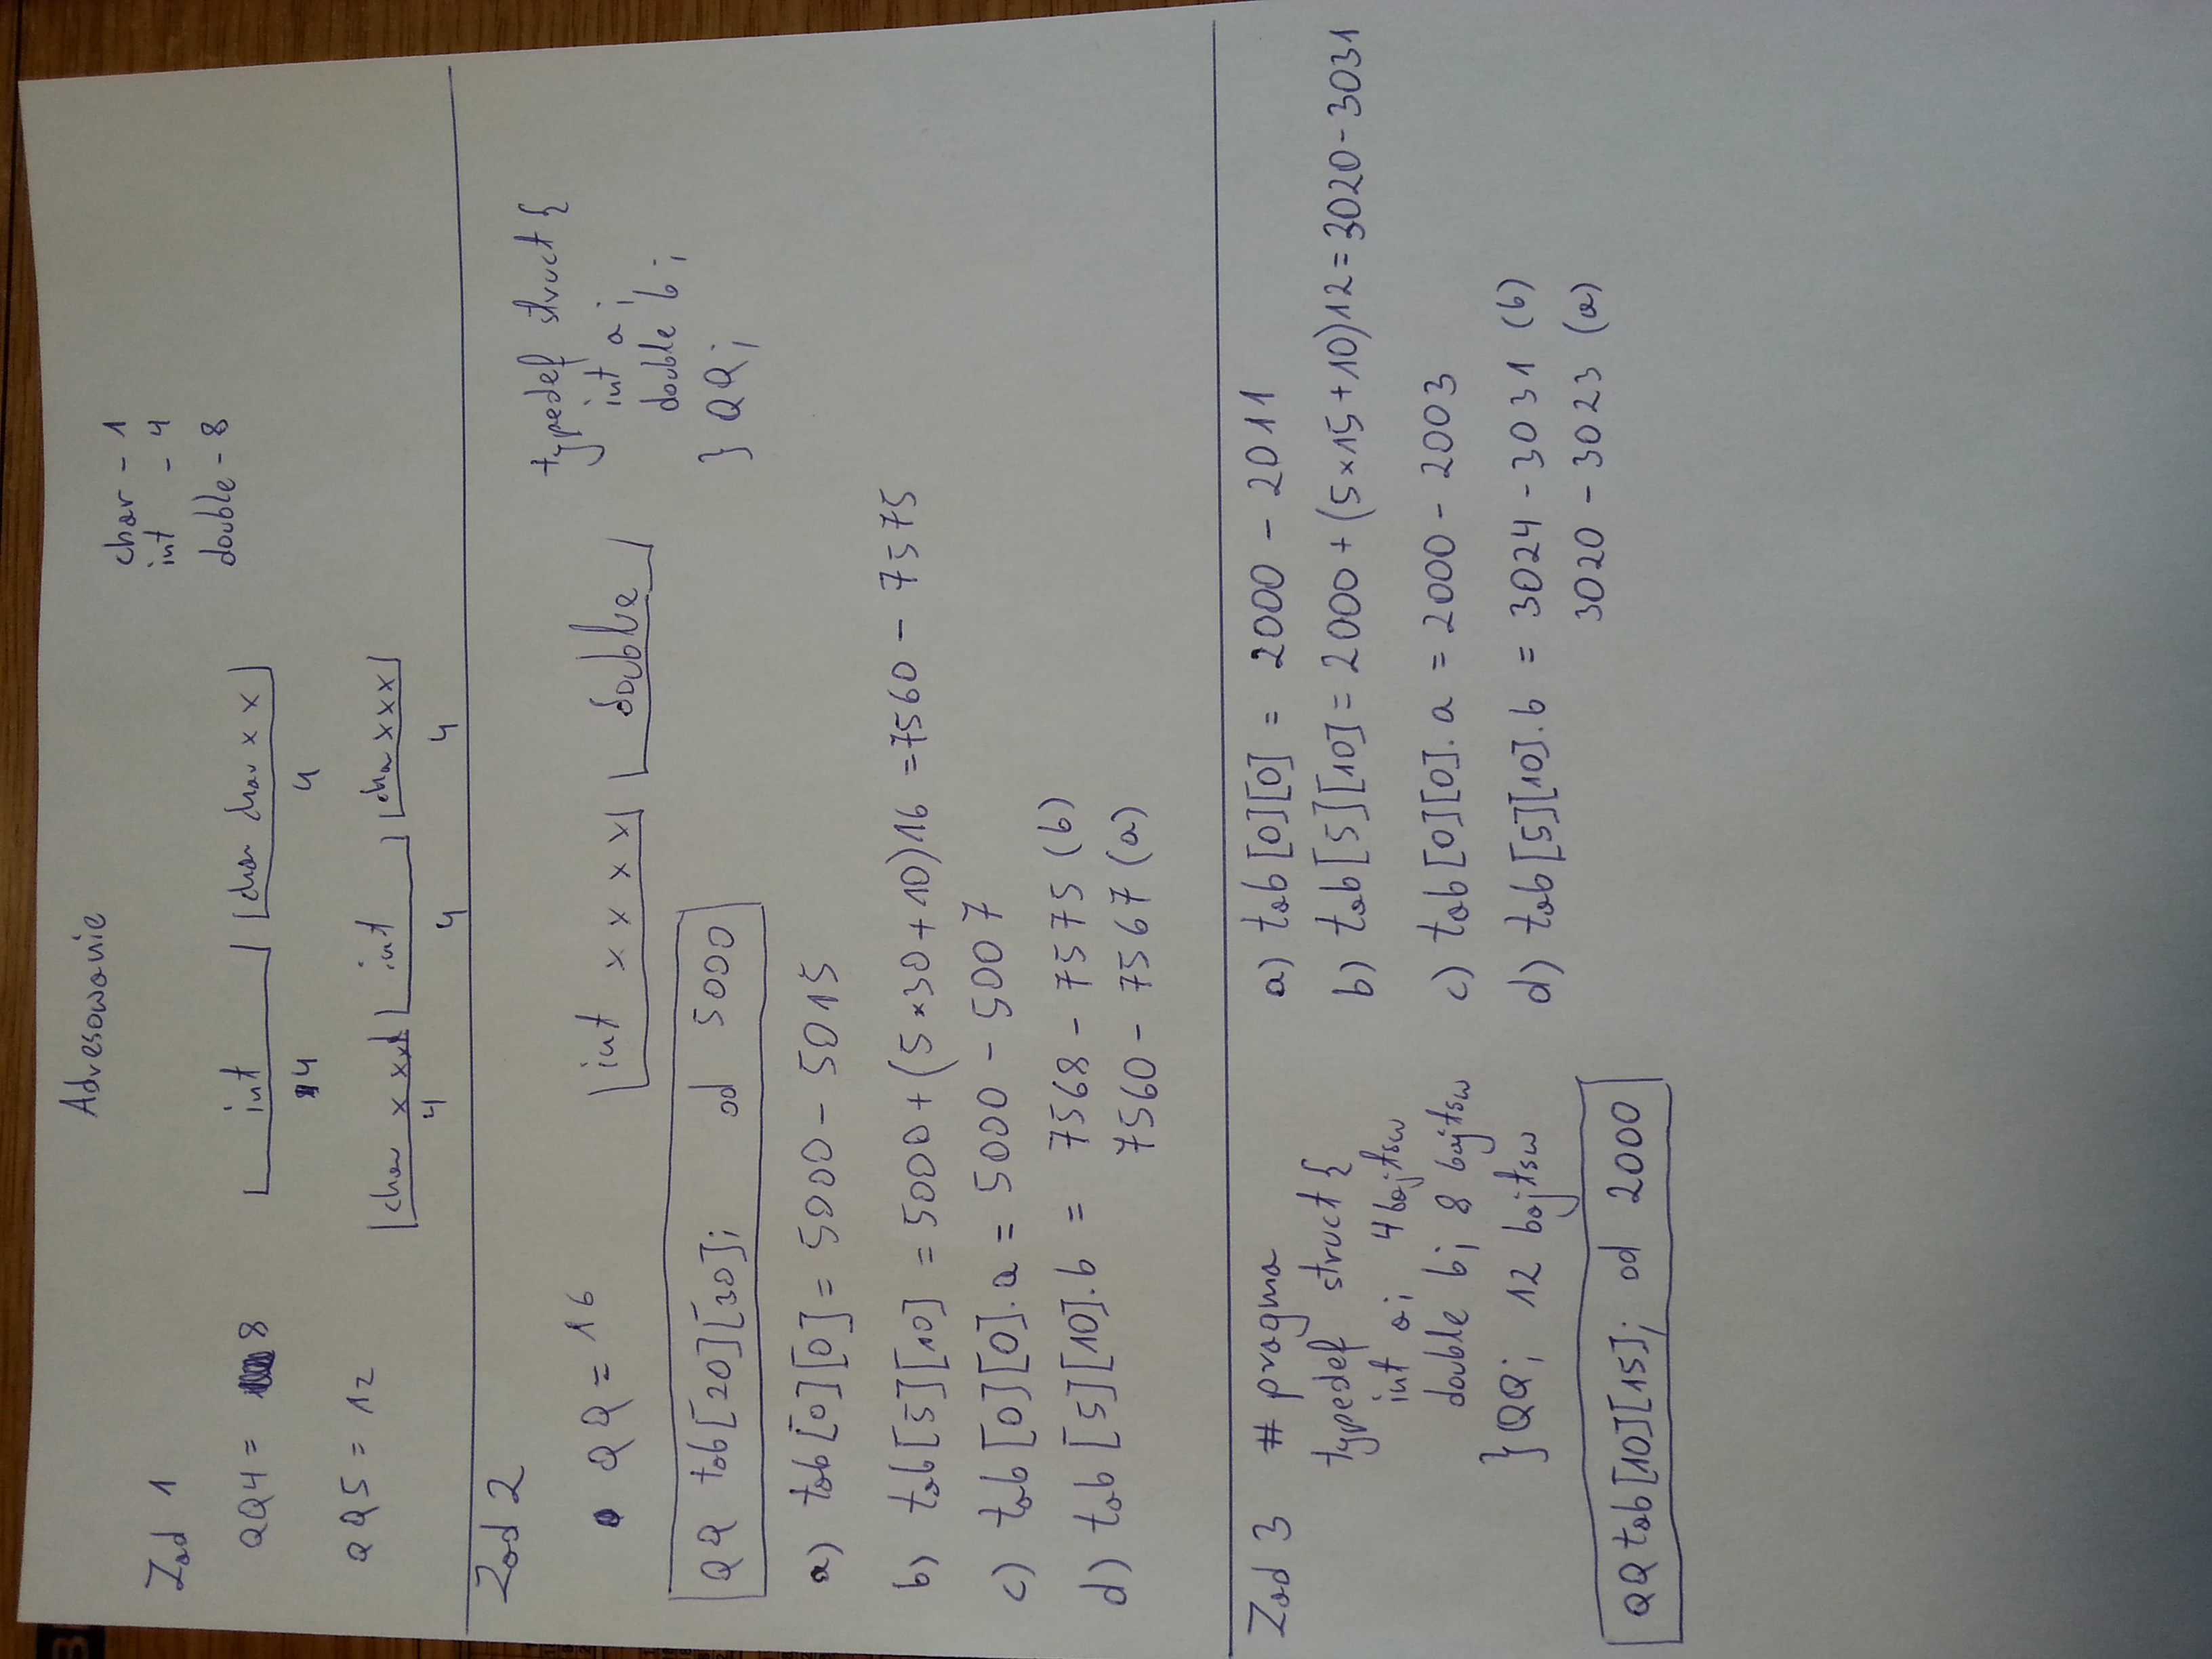 Adresowanie
char - 1
int - 4
double - 8
Zad 1
QQ4 = 8
int
char char x x
4
4
QQ5 = 12
char x x x
int
cha x x x
4
4
4
Zad 2
QQ = 16
int x x x x
double
typedef struct {
int a;
double b;
} QQ;
QQ tab[20][30]; od 5000
a) tab[0][0] = 5000 - 5015
b) tab[5][10] = 5000 + (5×30+10)16 = 7560 - 7575
c) tab[0][0].a = 5000 - 5007
d) tab[5][10].b = 7568 - 7575 (b)
7560 - 7567 (a)
Zad 3 # pragma
typedef struct {
int a; 4 bajtsw
double b; 8 bajtsw
} QQ; 12 bajtsw
QQ tab[10][15]; od 2000
a) tab[0][0] = 2000 - 2011
b) tab[5][10] = 2000 + (5×15+10)12 = 3020 - 3031
c) tab[0][0].a = 2000 - 2003
d) tab[5][10].b = 3024 - 3031 (b)
3020 - 3023 (a)